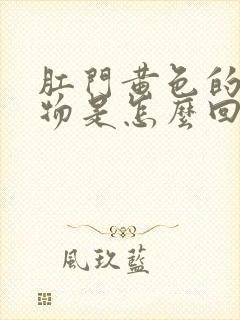 肛門黃色的
物是怎麼回
風玖藍